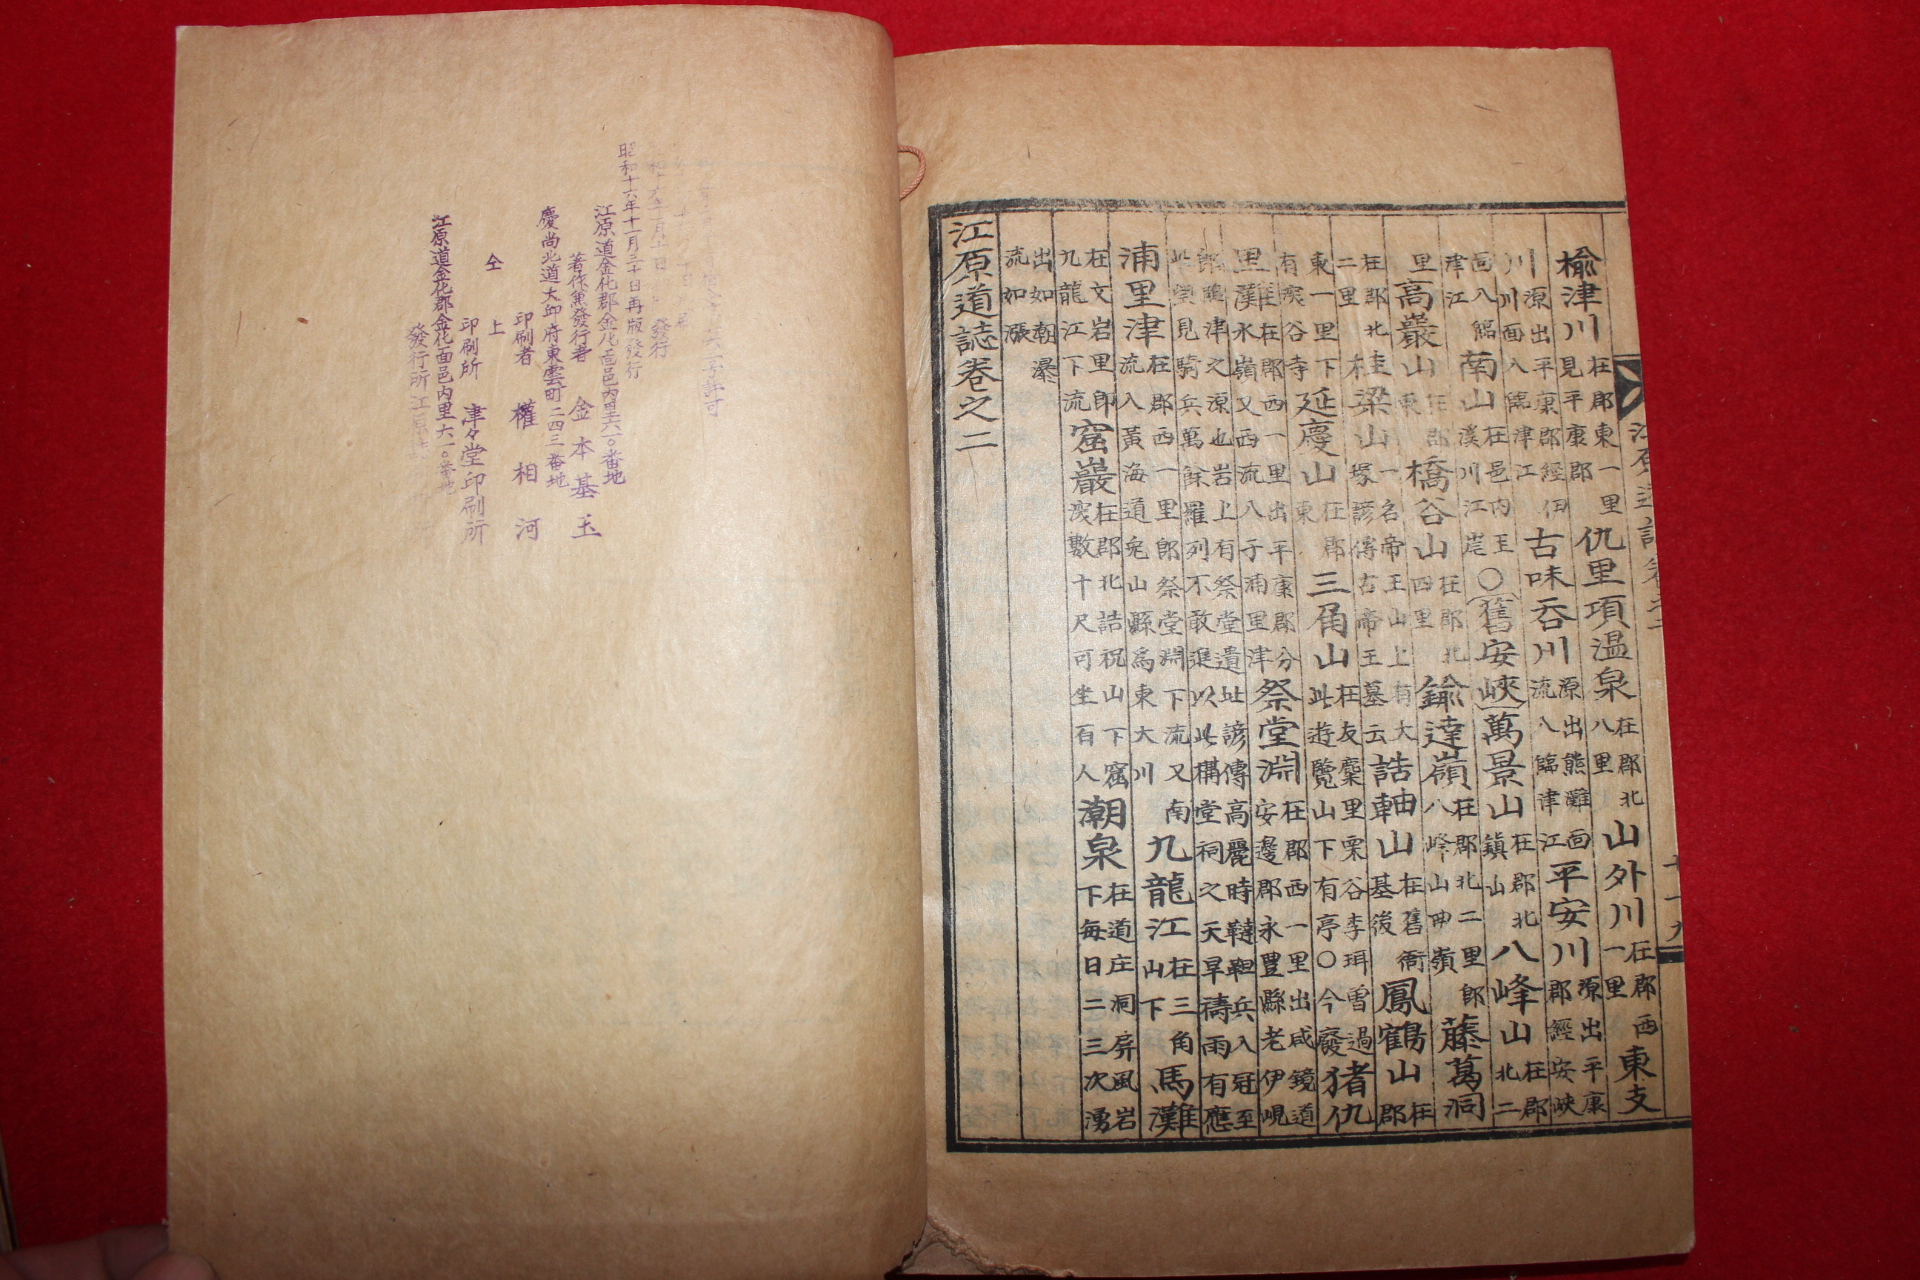 楡津川在郡東一里見平康郡仇里項温泉在郡北八里山外川在郡西一里東支
川源出平康郡經伊川面入臨津江古味呑川源出熊灘面流入臨津江平安川源出平康郡經安峽
面入臨津江南山在邑内王漢川江岸〇(舊安峽)萬景山在郡北鎮山八峰山在郡北二
里高巖山在郡東橋谷山在郡北四里鍮達嶺在郡北二里郎八峰山西嶺藤萬洞
在郡北二里桂梁山一名帝王山上有大塚諺傳古帝王墓云誥軸山在舊衙基後鳳鶴山在郡
東一里下有深谷寺延慶山在郡東三角山在友麋里栗谷李珥曾過此遊覽山下有亭〇今廢猪仇
里灘在郡西一里出平康郡分水嶺又西流八于浦里津祭堂淵在郡西一里出咸鏡道安邊郡永豊縣老伊峴
郎臨津之源也岩上有祭堂遺址諺傳高麗時韃靼兵入冦至此望見騎兵萬餘羅列不敢進以此構堂祠之天旱禱雨有應
浦里津在郡西一里郎祭堂淵下流又南流入黃海道兎山縣爲東大川九龍江在三角山下馬灘
在文岩里郎九龍江下流窟巖在郡北誥祝山下窟深數十尺可坐百人潮泉在道庄洞屏風岩下每日二三次湧
出如潮瀑流如漲
江原道誌卷之二
昭和十六年十一月三十日再版發行
江原道金化郡金化面邑内里六一〇番地
著作兼發行者 金本基玉
慶尚北道大邱府東雲町二四三番地
印刷者 權相河
仝上
印刷所 津々堂印刷所
江原道金化郡金化面邑内里六一〇番地
發行所 江原